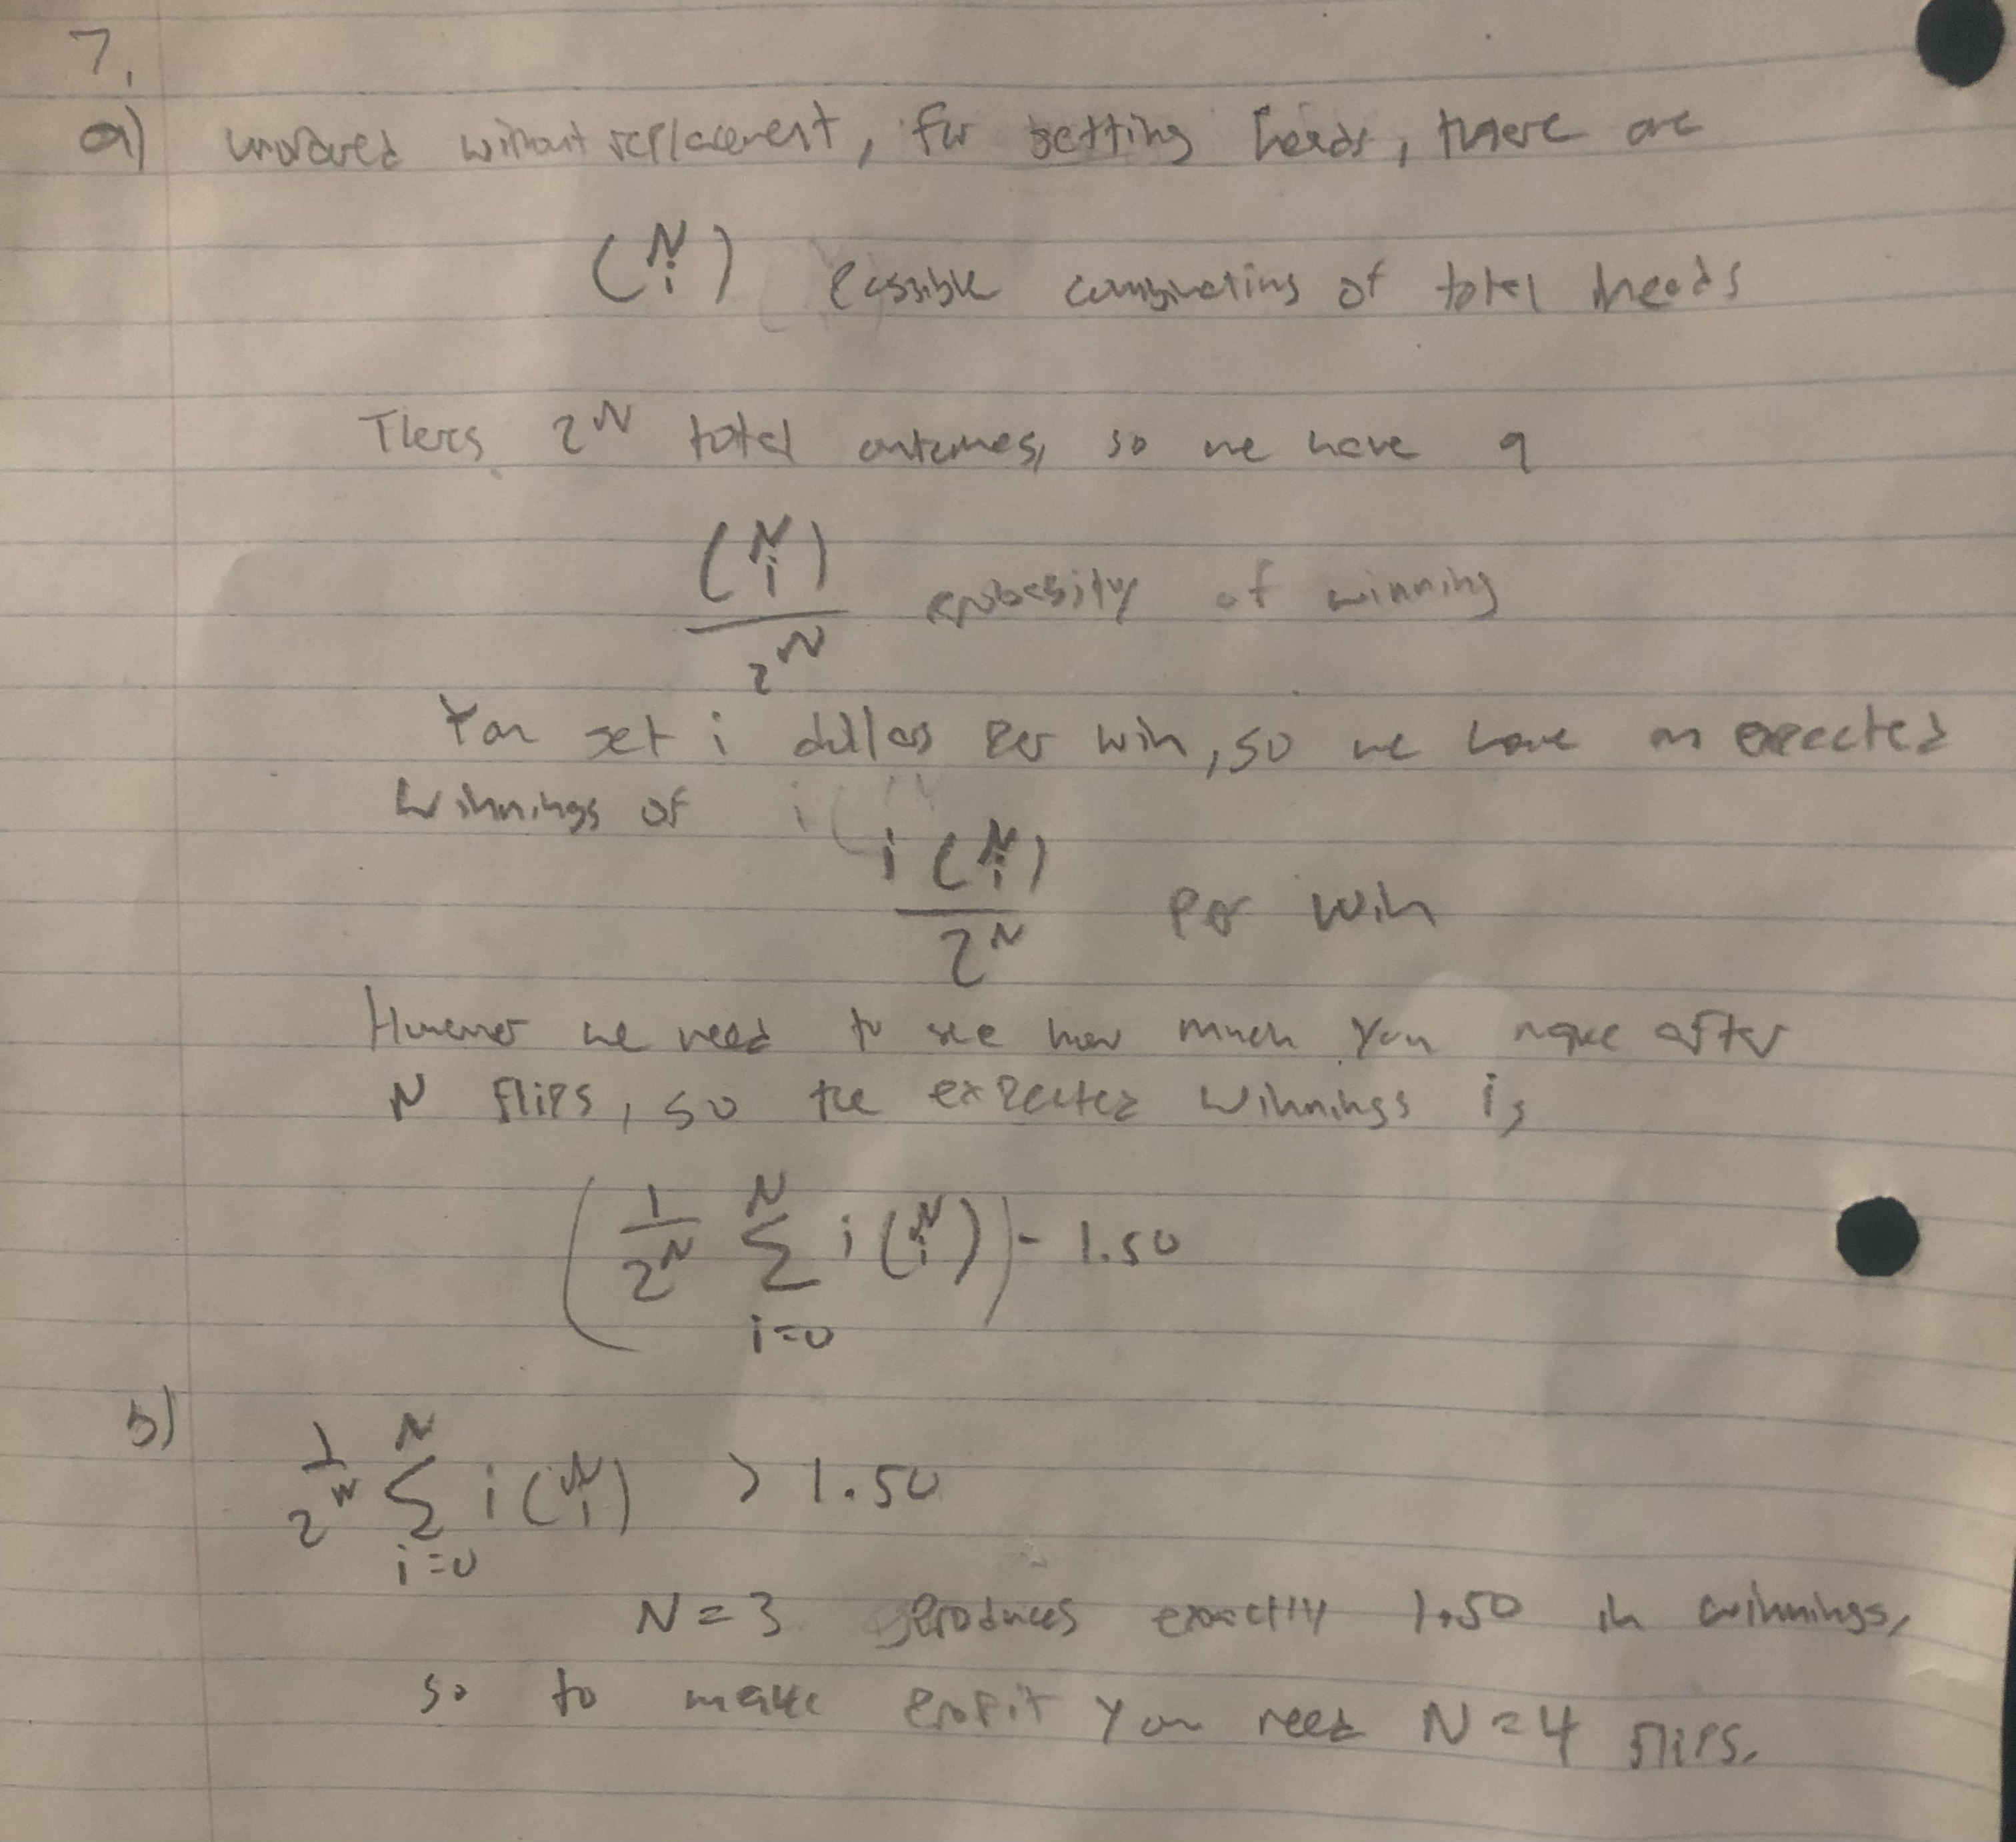 7.
a) unordered without replacement, for getting heads, there are
(N i) possible combinations of total heads
Theres 2^N total outcomes, so we have a
(N i) / 2^N probability of winning
You get i dollars per win, so we have an expected
winnings of
i (N i) / 2^N per win
However we need to see how much you make after
N flips, so the expected winnings is
(1/2^N Σ_{i=0}^{N} i (N i)) - 1.50
b) 1/2^N Σ_{i=0}^{N} i (N i) > 1.50
N = 3 produces exactly 1.50 in winnings,
so to make profit you need N = 4 flips.